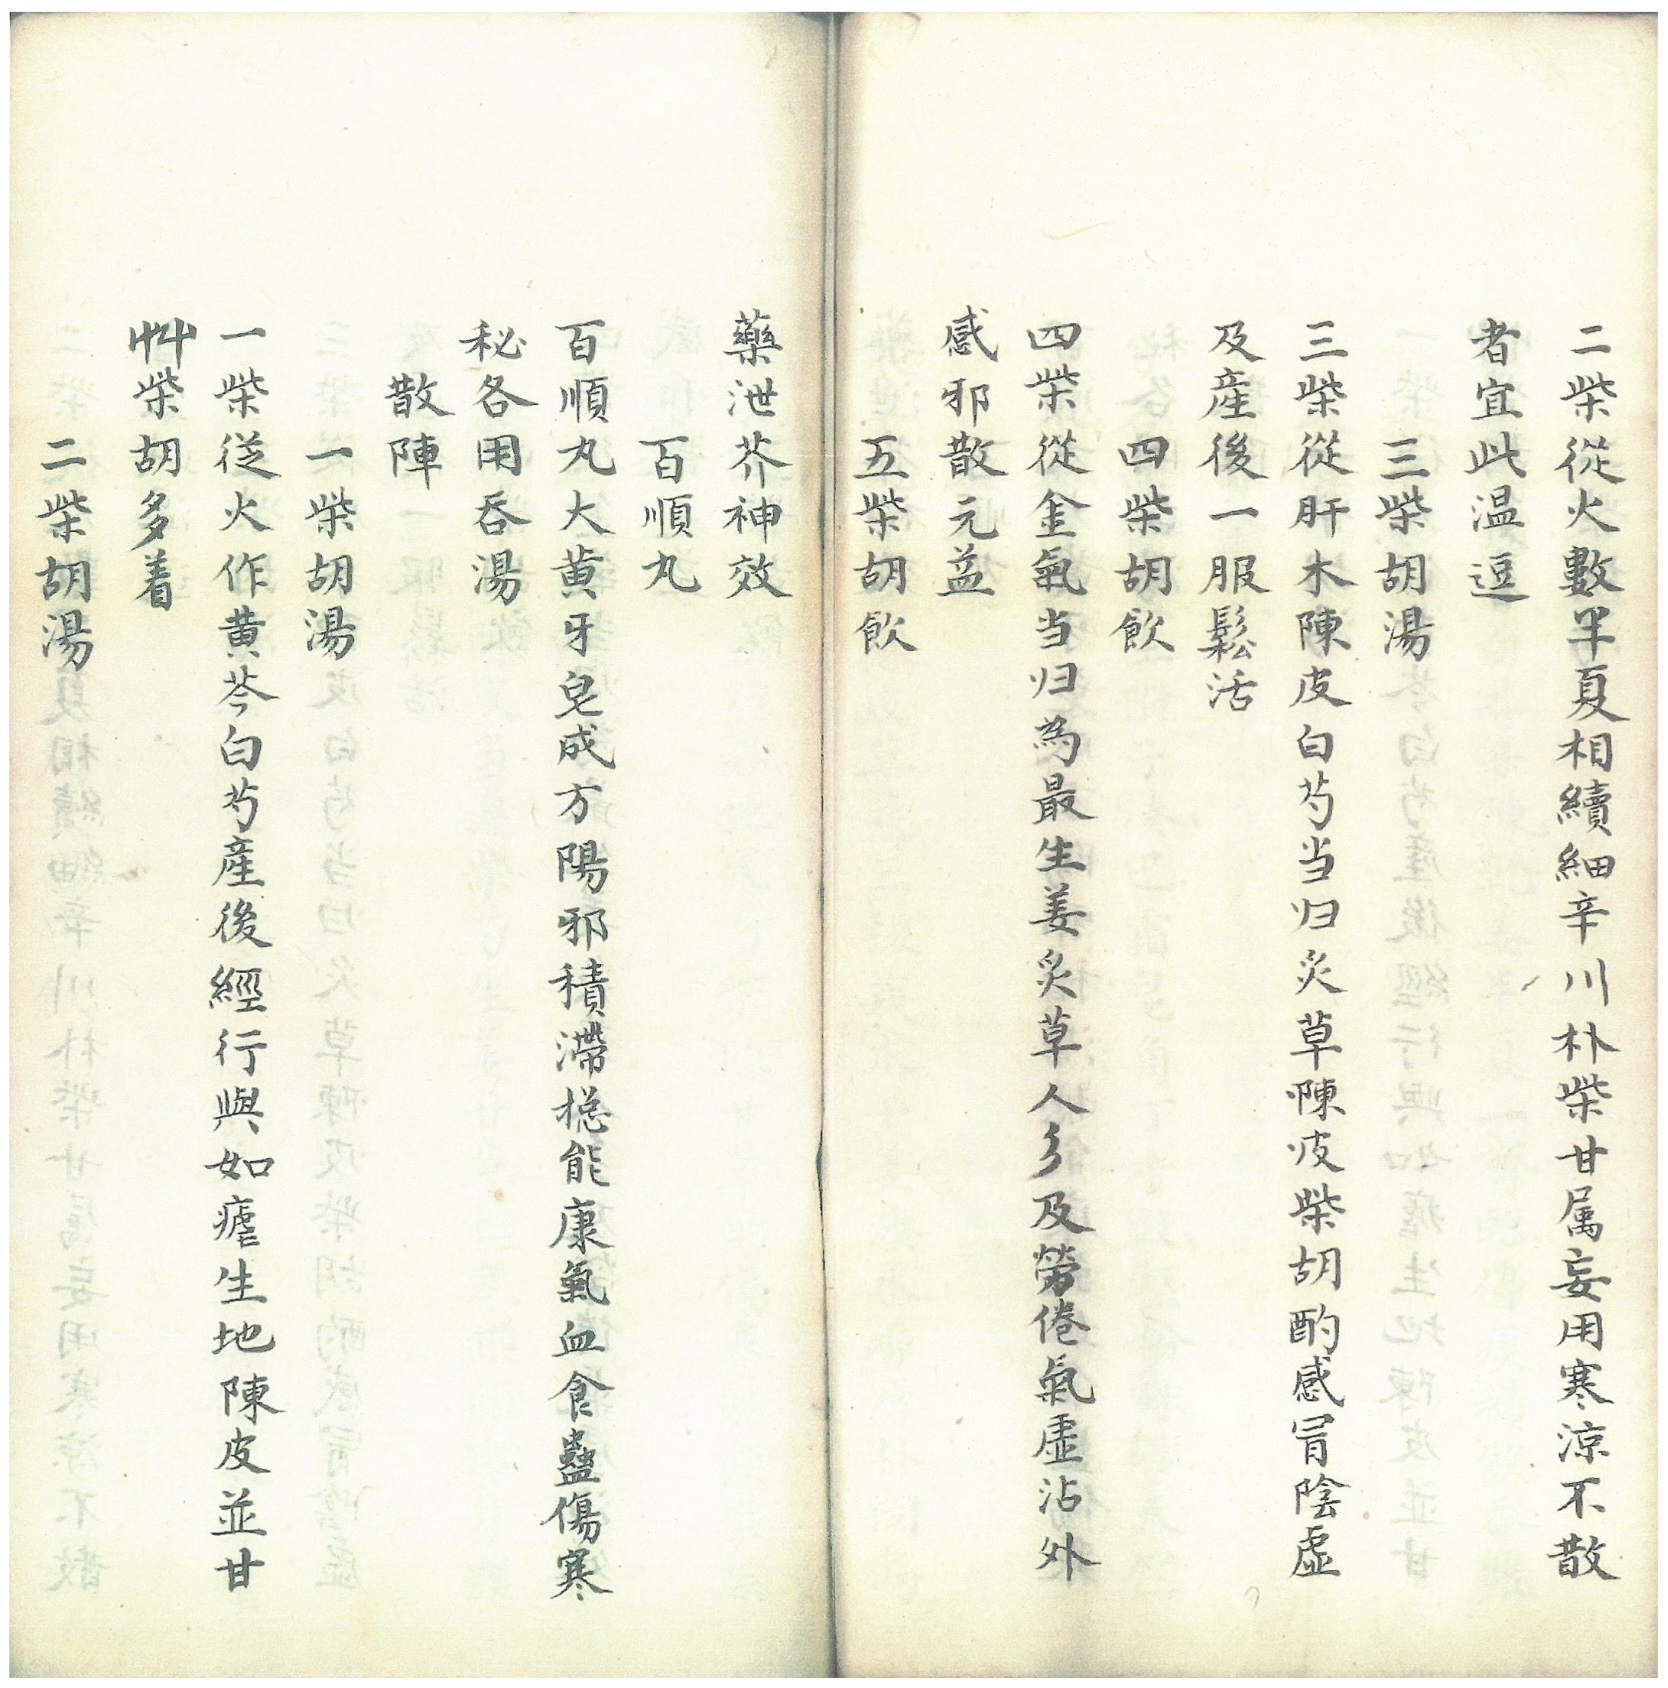 二柴從火數半夏相續細辛川朴柴甘属妄用寒涼不散
者宜此温逗
三柴胡湯
三柴從肝木陳皮白芍当归炙草陳皮柴胡酌感冒陰虛
及産後一服鬆活
四柴胡飲
四柴從金氣当归為最生姜炙草人彡及勞倦氣虛沾外
感邪散元益
五柴胡飲
藥泄芥神效
百順丸
百順丸大黄牙皂成方陽邪積滯穏能康氣血食蠱傷寒
秘各用吞湯
散陣
一柴胡湯
一柴從火作黄芩白芍産後經行與如瘧生地陳皮並甘
艸柴胡多着
二柴胡湯